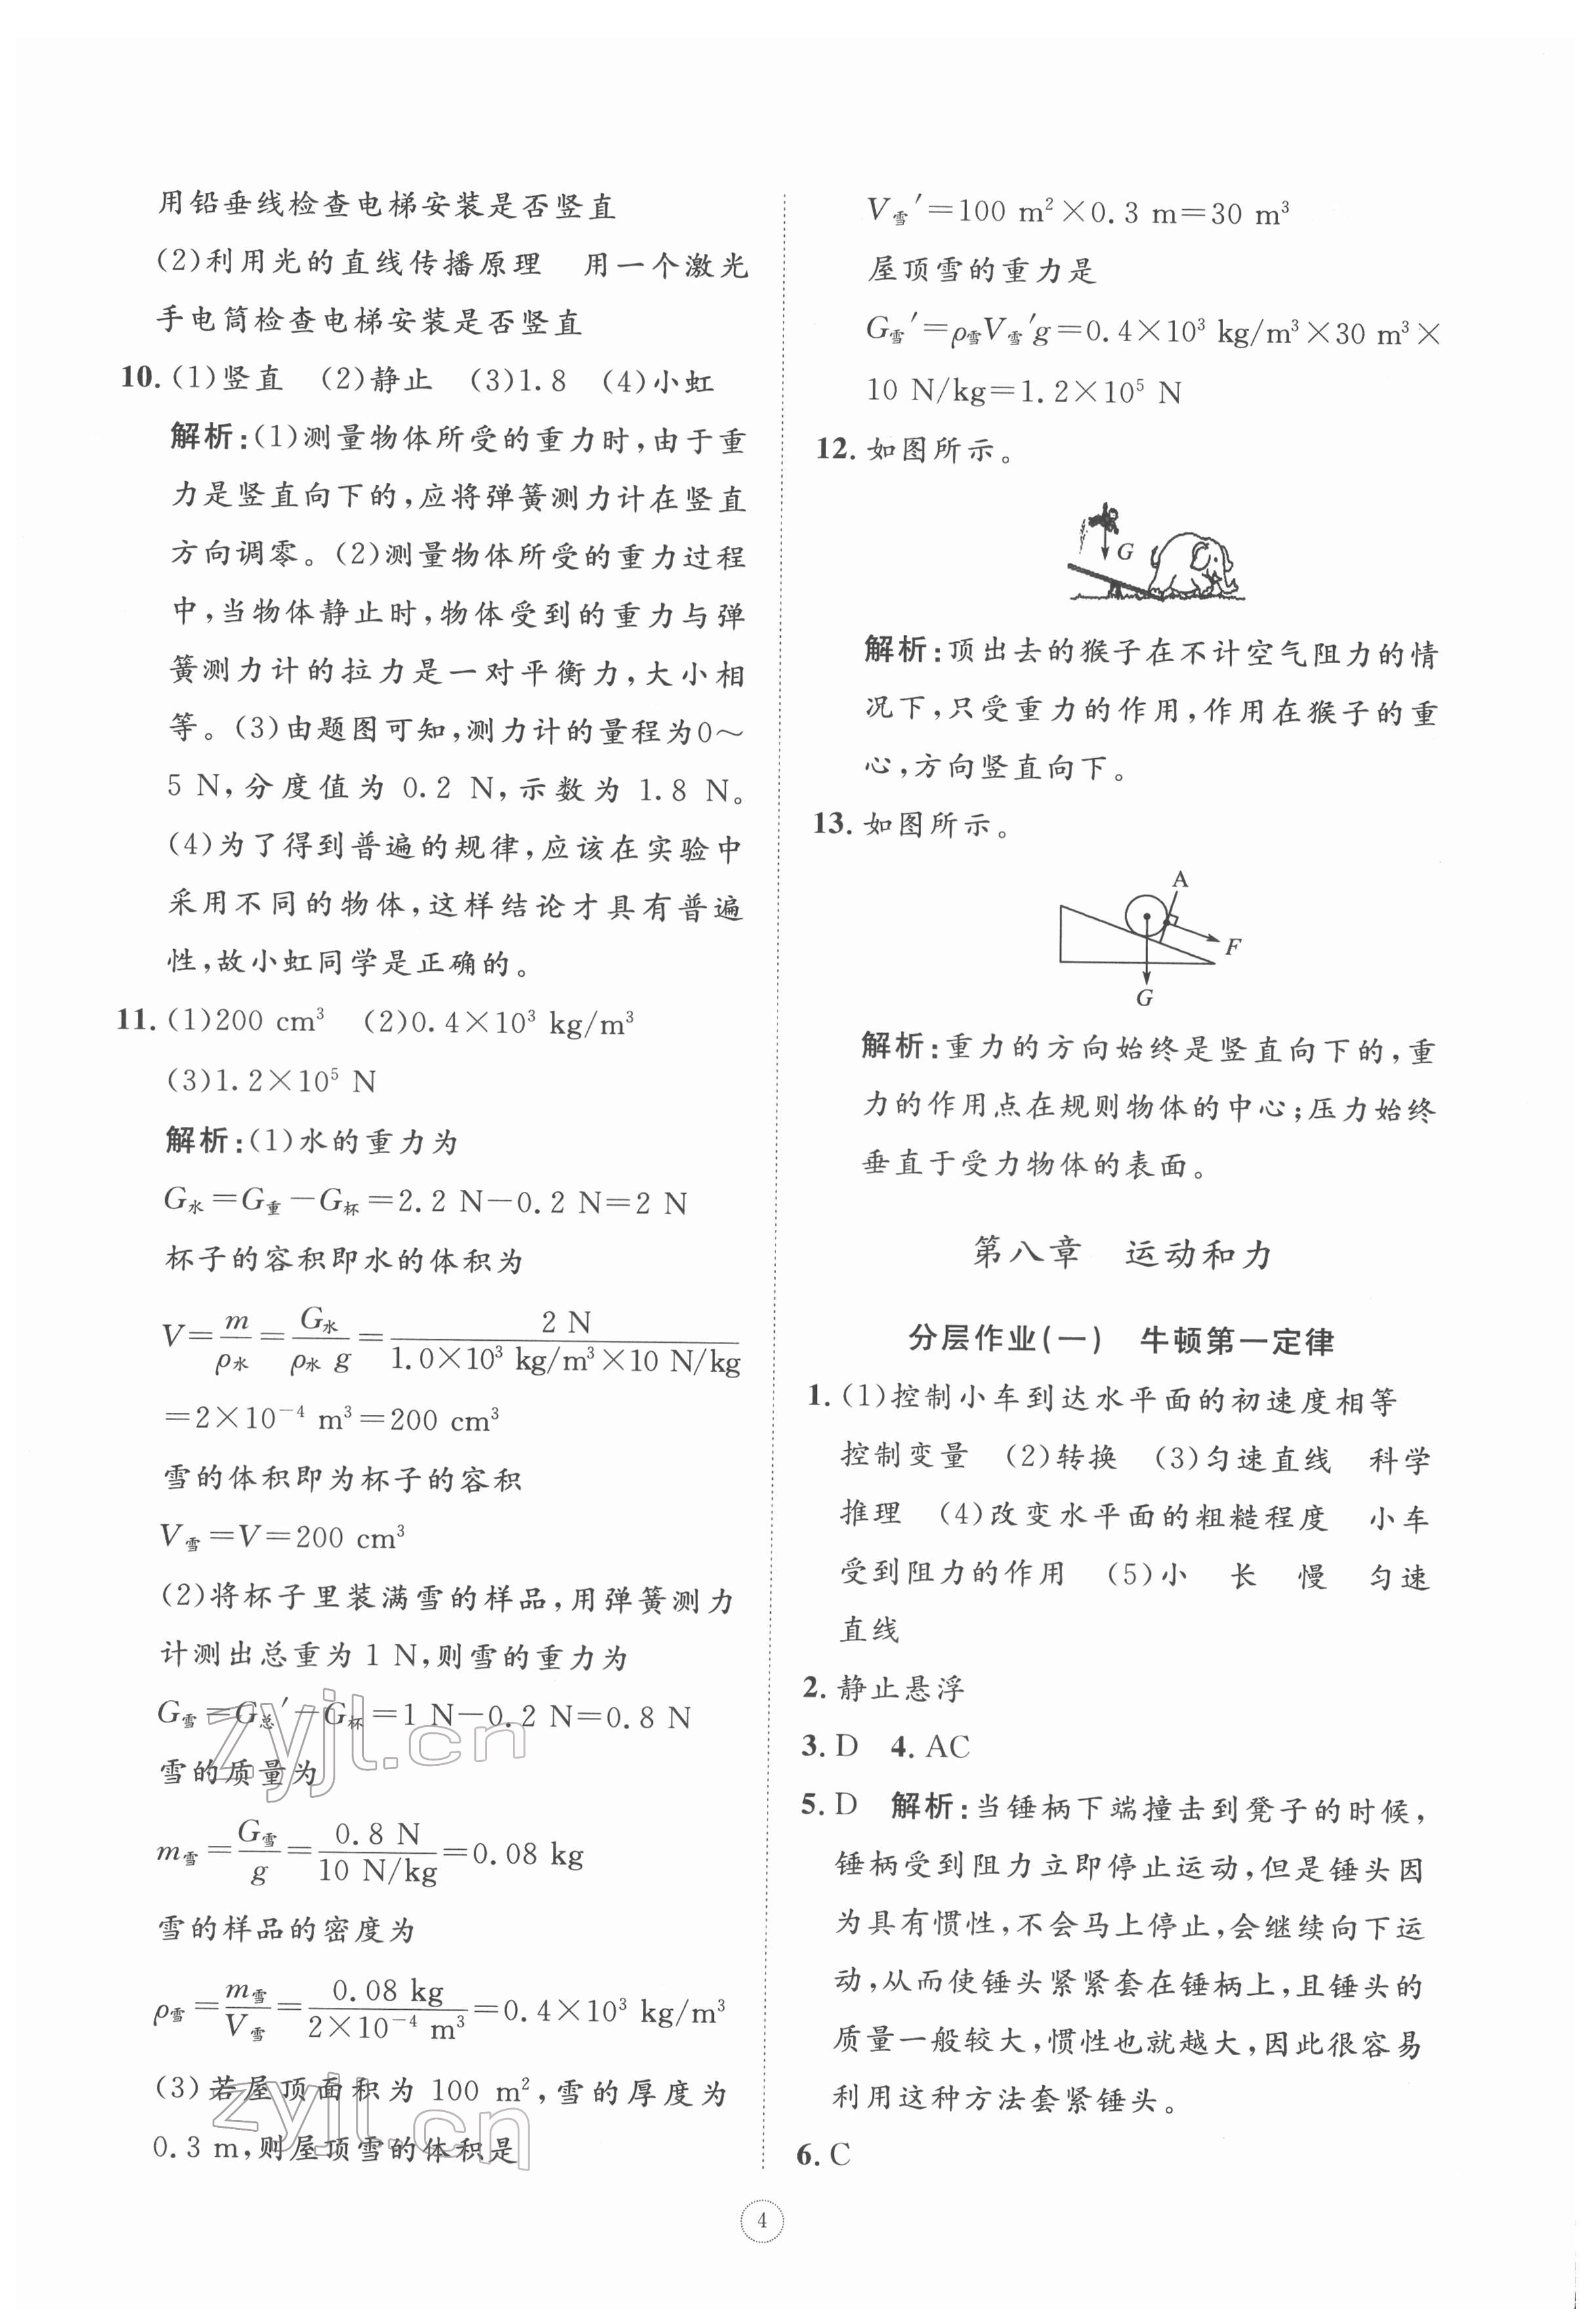 用铅垂线检查电梯安装是否竖直
(2)利用光的直线传播原理　用一个激光
手电筒检查电梯安装是否竖直
10. (1)竖直　(2)静止　(3)1.8　(4)小虹
解析:(1)测量物体所受的重力时,由于重
力是竖直向下的,应将弹簧测力计在竖直
方向调零。(2)测量物体所受的重力过程
中,当物体静止时,物体受到的重力与弹
簧测力计的拉力是一对平衡力,大小相
等。(3)由题图可知,测力计的量程为0～
5 N,分度值为 0.2 N,示数为 1.8 N。
(4)为了得到普遍的规律,应该在实验中
采用不同的物体,这样结论才具有普遍
性,故小虹同学是正确的。
11. (1)200 cm³　(2)0.4×10³ kg/m³
(3)1.2×10⁵ N
解析:(1)水的重力为
G水=G重-G杯=2.2 N-0.2 N=2 N
杯子的容积即水的体积为
V=m/ρ水=G水/(ρ水 g)=2 N/(1.0×10³ kg/m³×10 N/kg)
=2×10⁻⁴ m³=200 cm³
雪的体积即为杯子的容积
V雪=V=200 cm³
(2)将杯子里装满雪的样品,用弹簧测力
计测出总重为 1 N,则雪的重力为
G雪=G总′-G杯=1 N-0.2 N=0.8 N
雪的质量为
m雪=G雪/g=0.8 N/(10 N/kg)=0.08 kg
雪的样品的密度为
ρ雪=m雪/V雪=0.08 kg/(2×10⁻⁴ m³)=0.4×10³ kg/m³
(3)若屋顶面积为 100 m²,雪的厚度为
0.3 m,则屋顶雪的体积是
zyjl.cn
zyjl.cn
V雪′=100 m²×0.3 m=30 m³
屋顶雪的重力是
G雪′=ρ雪V雪′g=0.4×10³ kg/m³×30 m³×
10 N/kg=1.2×10⁵ N
12. 如图所示。
G
解析:顶出去的猴子在不计空气阻力的情
况下,只受重力的作用,作用在猴子的重
心,方向竖直向下。
13. 如图所示。
A
F
G
解析:重力的方向始终是竖直向下的,重
力的作用点在规则物体的中心;压力始终
垂直于受力物体的表面。
第八章　运动和力
分层作业(一)　牛顿第一定律
1. (1)控制小车到达水平面的初速度相等
控制变量　(2)转换　(3)匀速直线　科学
推理　(4)改变水平面的粗糙程度　小车
受到阻力的作用　(5)小　长　慢　匀速
直线
2. 静止悬浮
3. D　4. AC
5. D　解析:当锤柄下端撞击到凳子的时候,
锤柄受到阻力立即停止运动,但是锤头因
为具有惯性,不会马上停止,会继续向下运
动,从而使锤头紧紧套在锤柄上,且锤头的
质量一般较大,惯性也就越大,因此很容易
利用这种方法套紧锤头。
6. C
4